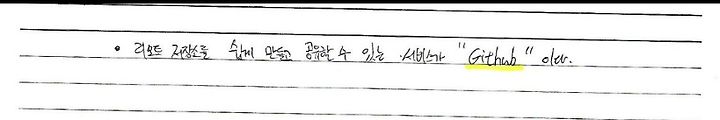 • 리모트 저장소를 쉽게 만들고 공유할 수 있는 서비스가 "Github" 이다.